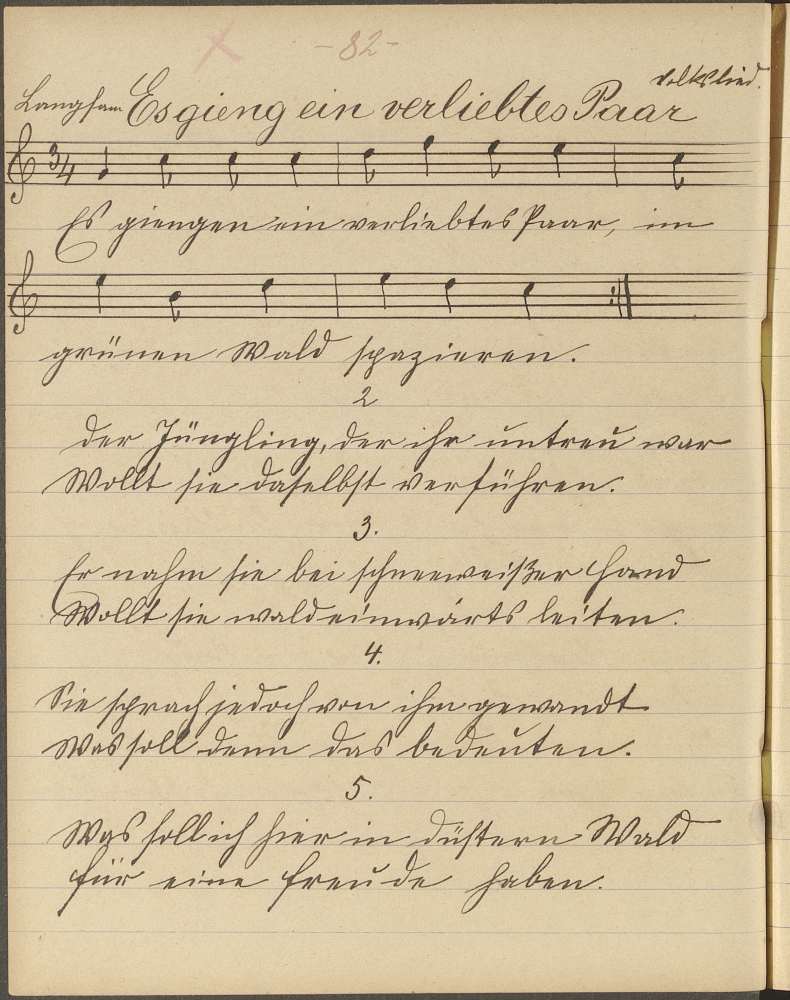 -82-
Volkslied.
Langsam Es gieng ein verliebtes Paar
3/4
Es giengen ein verliebtes Paar, im
grünen Wald spazieren.
2
Der Jüngling, der ihr untreu war
Wollt sie daselbst verführen.
3.
Er nahm sie bei schneeweißer Hand
Wollt sie waldeinwärts leiten.
4.
Sie sprach jedoch von ihm gewandt
Was soll denn das bedeuten.
5.
Was soll ich hier in düstern Wald
für eine Freude haben.